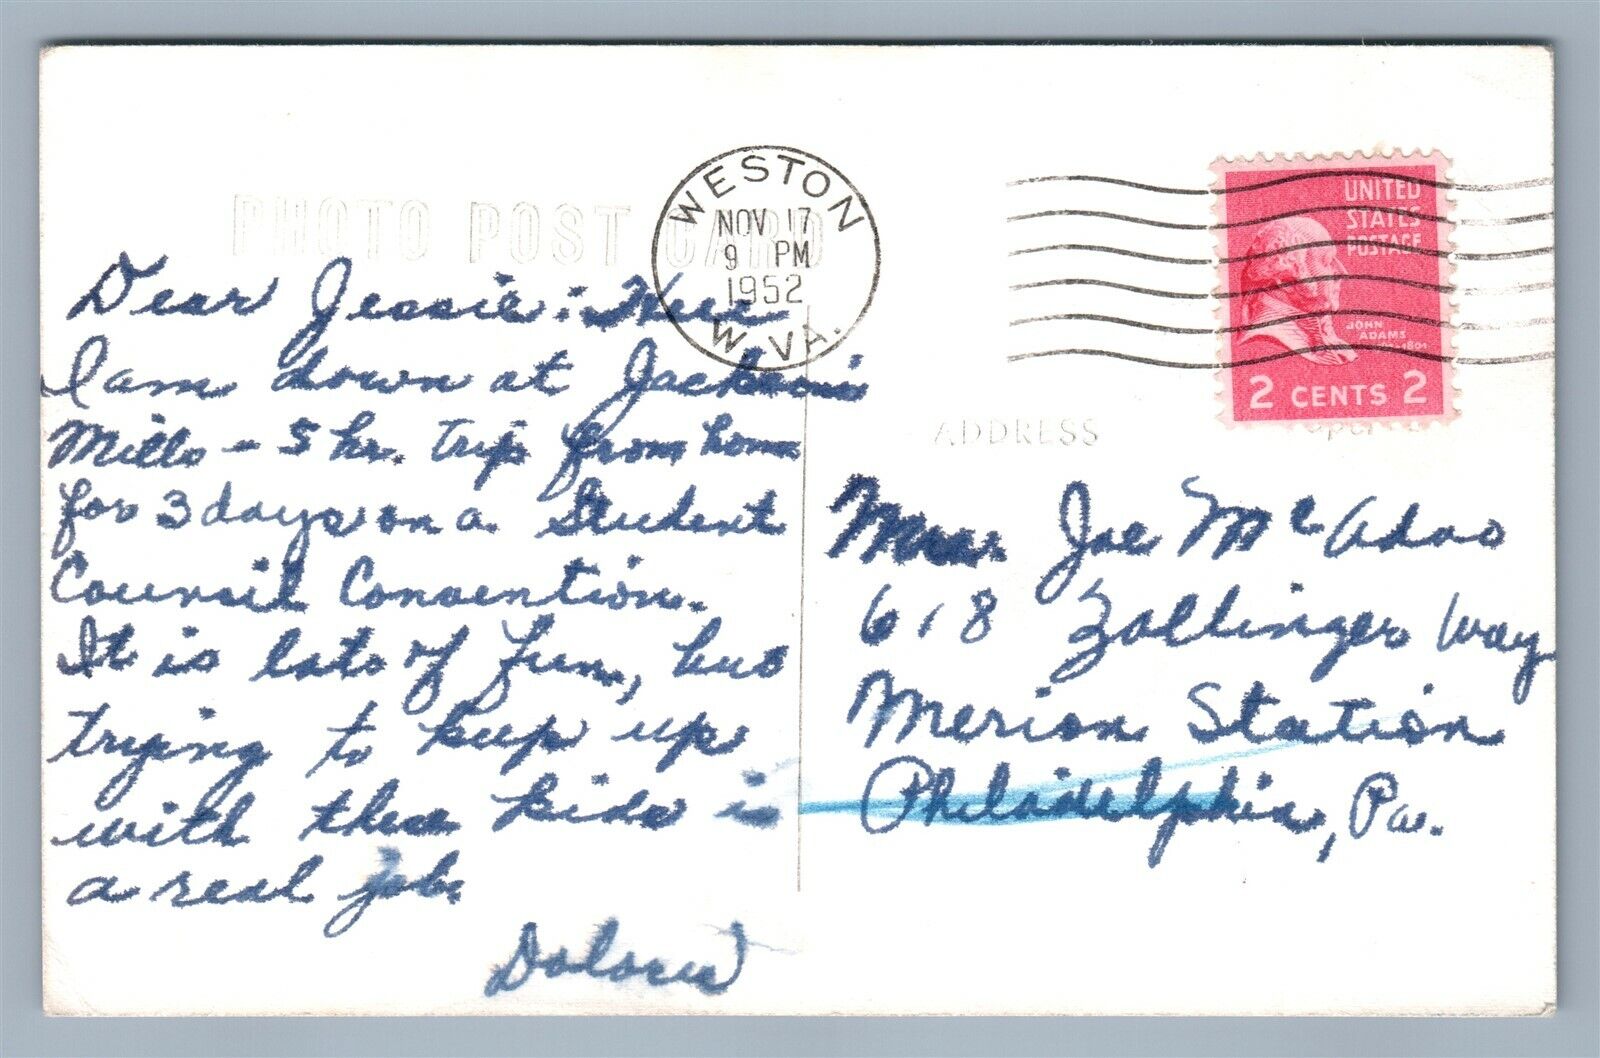 PHOTO POST CARD
WESTON
NOV 17
9 PM
1952
W. VA.
UNITED
STATES
POSTAGE
JOHN
ADAMS
1801
2 CENTS 2
ADDRESS
Dear Jessie: Here
I am down at Jackson's
Mills - 5 hr. trip from home
for 3 days on a Student
Council Convention.
It is lots of fun, but
trying to keep up
with these kids is
a real job.
Dolores
Mrs. Joe McAdoo
618 Zollinger Way
Merion Station
Philadelphia, Pa.